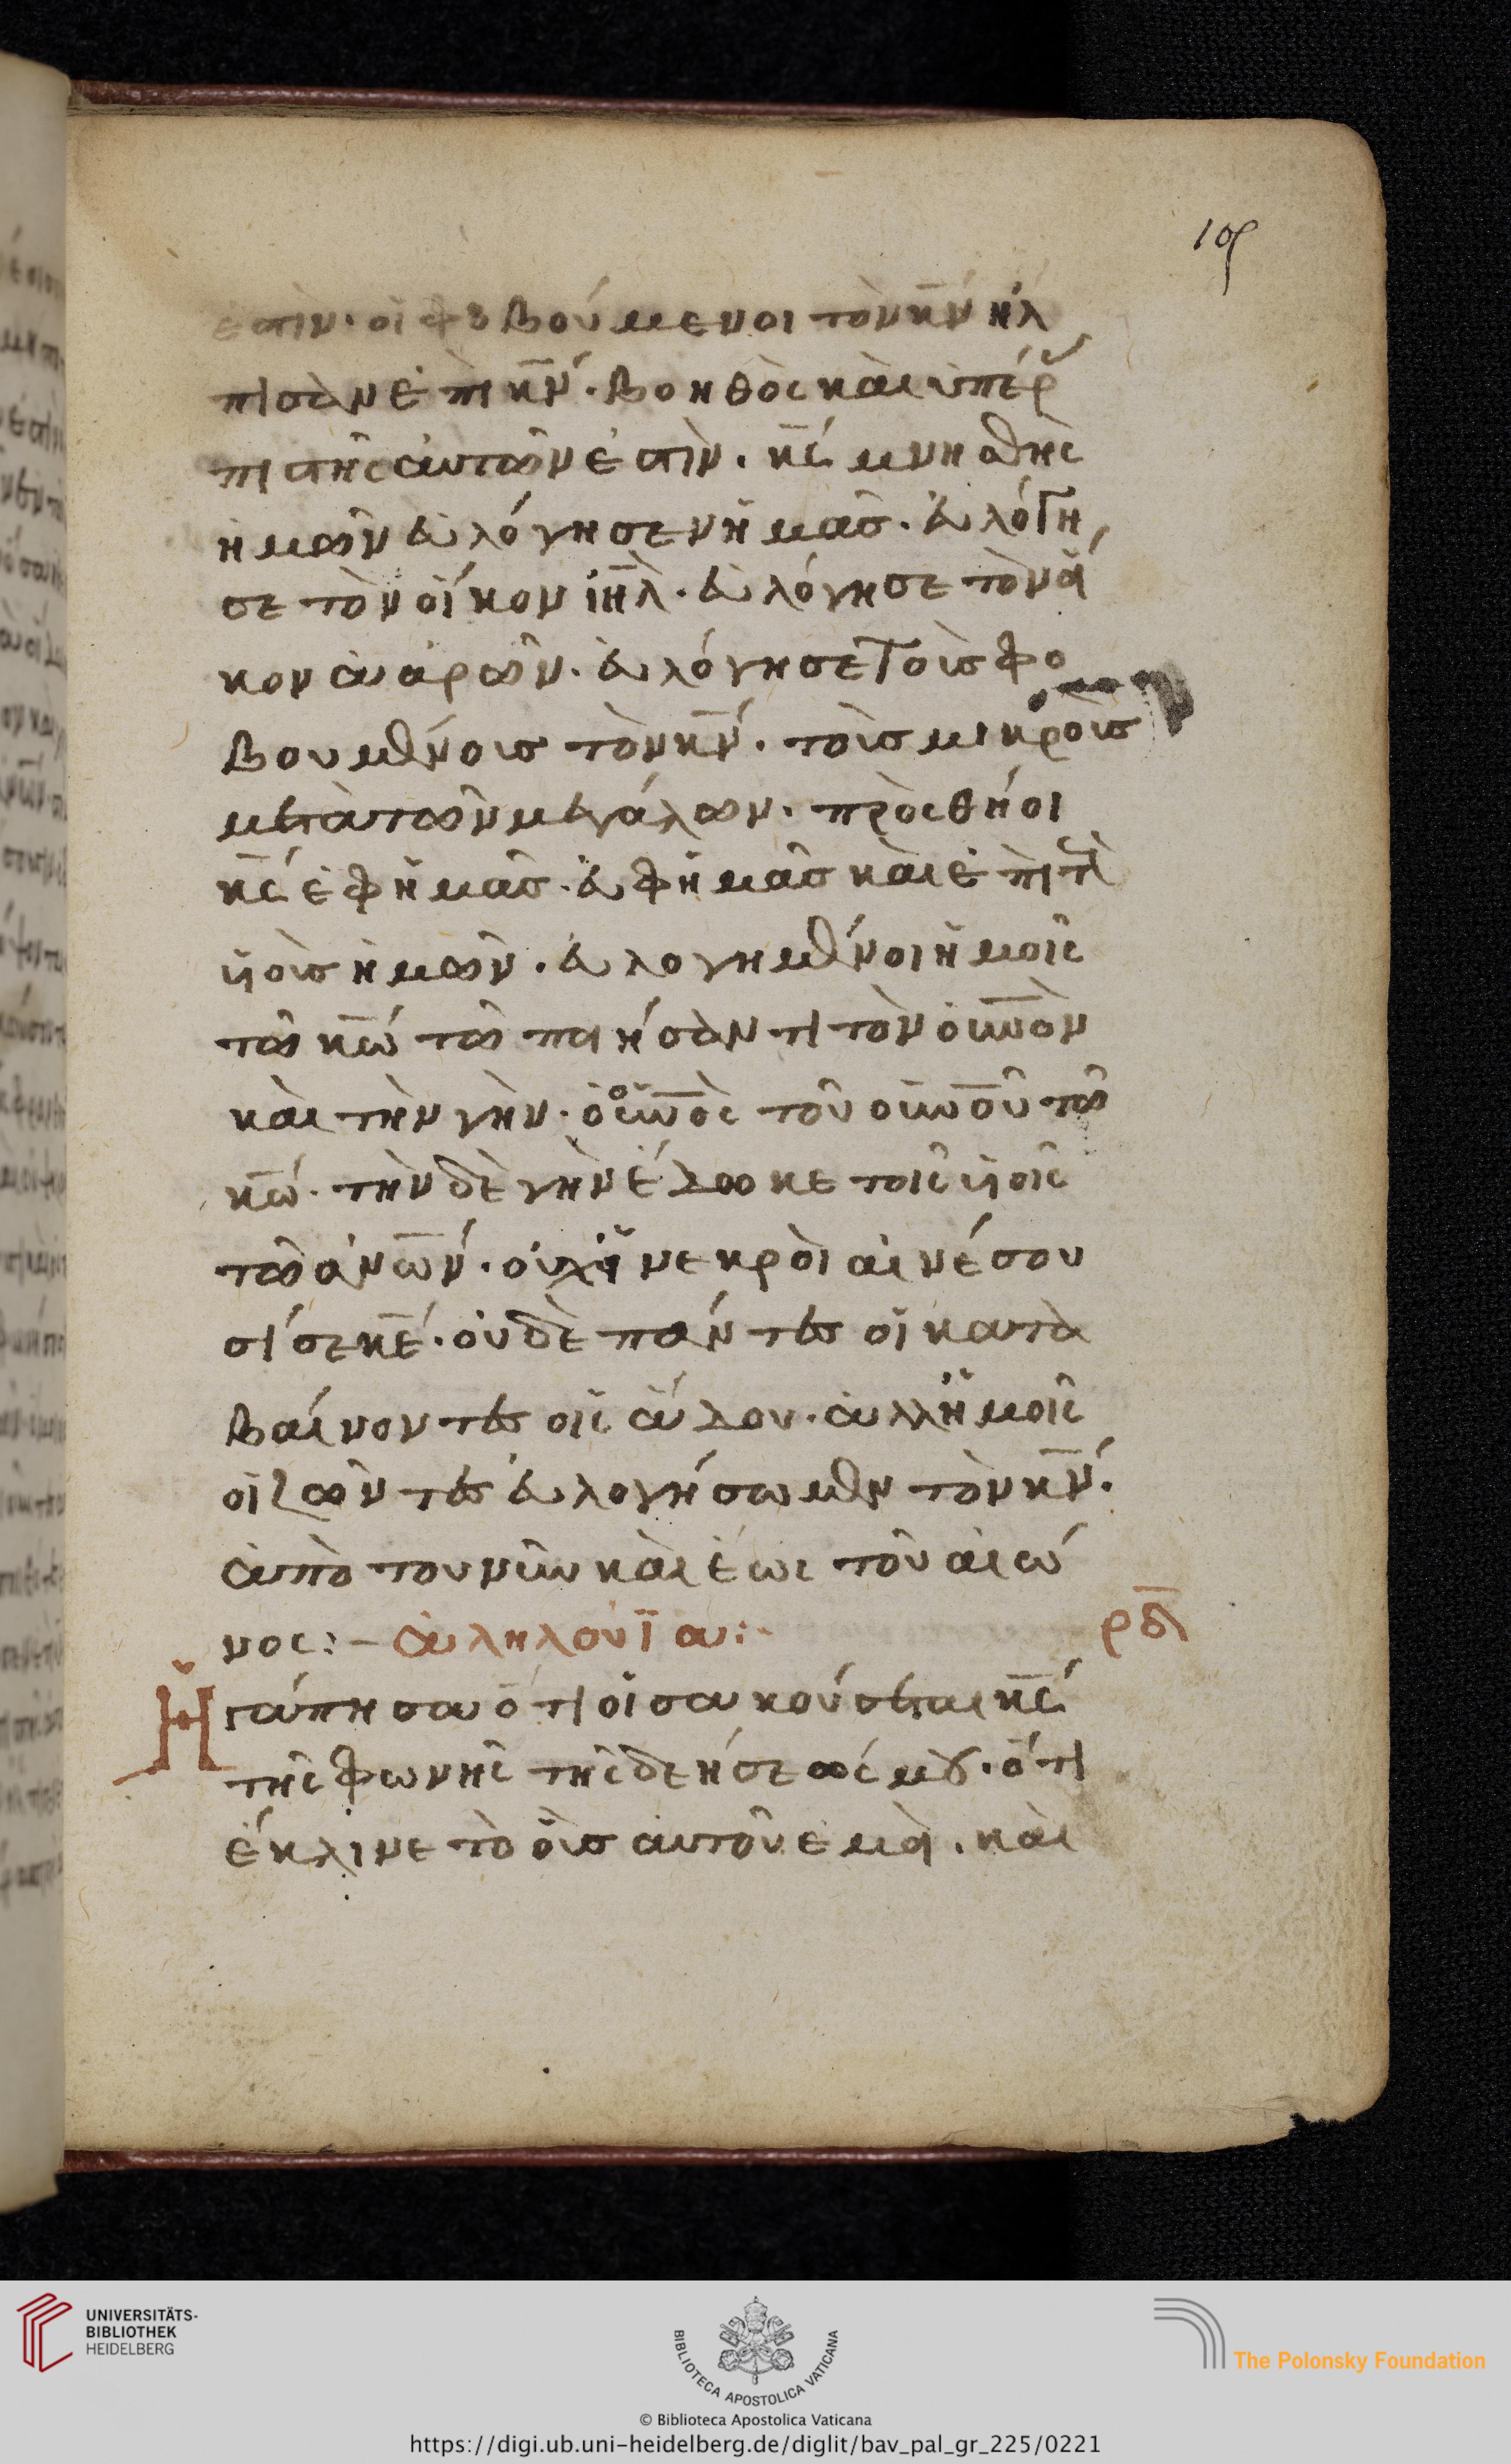 105
ἐστίν· οἱ φοβούμενοι τὸν κ̅ν̅ ἤλ
πισαν ἐπὶ κ̅ν̅· βοηθὸς καὶ ὑπερ
πιστῆς αὐτῶν ἐστὶν. κ̅ς̅ μνησθῆς
ἡμῶν εὐλόγησεν ἡμᾶς· εὐλόγη
σε τὸν οἶκον ι̅η̅λ̅· εὐλόγησε τὸν ὕ
κον ἀαρών· εὐλόγησε τοὶς φο
βουμένοις τὸν κ̅ν̅· τοὶς μικροὶς
μετὰ τῶν μεγάλων· πρὸσθήοι
κ̅ς̅ ἐφἡμᾶς· ἐφἡμᾶς καὶ ἐπὶ τ
ὑοὶς ἡμῶν· εὐλογημένοι ἡμοῖς
τῶ κ̅ω̅ τῶ ποιήσαντι τὸν ου̅νὸν
καὶ τὴν γὴν· ὁ οὐ̅νὸς τοῦ οὐ̅νοῦ τῶ
κ̅ω̅· τὴν δὲ γὴν ἔδωκε τοῖς ὑοῖς
τῶ ἀ̅νων· οὐχὶ νεκρὸι αἰνέσου
σί σε κ̅ε̅· οὐδὲ πάντες οἱ κατα
βαίνοντες οἰς ἅδου· ἀλλἡμοῖς
οἱ ζῶντες εὐλογήσωμεν τὸν κ̅ν̅·
ἀπὸ τοῦ νῦν καὶ ἕως τοῦ αἰώ
νος:– ἀληλούϊα:·
ρ̅ι̅δ̅
Ἠγάπησα ὅτι οἰσακούσεται κ̅ς̅
τῆς φωνῆς τῆς δεήσεώς μου· ὅτι
ἔκλινε τὸ οὖς αὐτοῦ ἐμὴ· καὶ
UNIVERSITÄTS-
BIBLIOTHEK
HEIDELBERG
BIBLIOTECA APOSTOLICA VATICANA
The Polonsky Foundation
© Biblioteca Apostolica Vaticana
https://digi.ub.uni-heidelberg.de/diglit/bav_pal_gr_225/0221